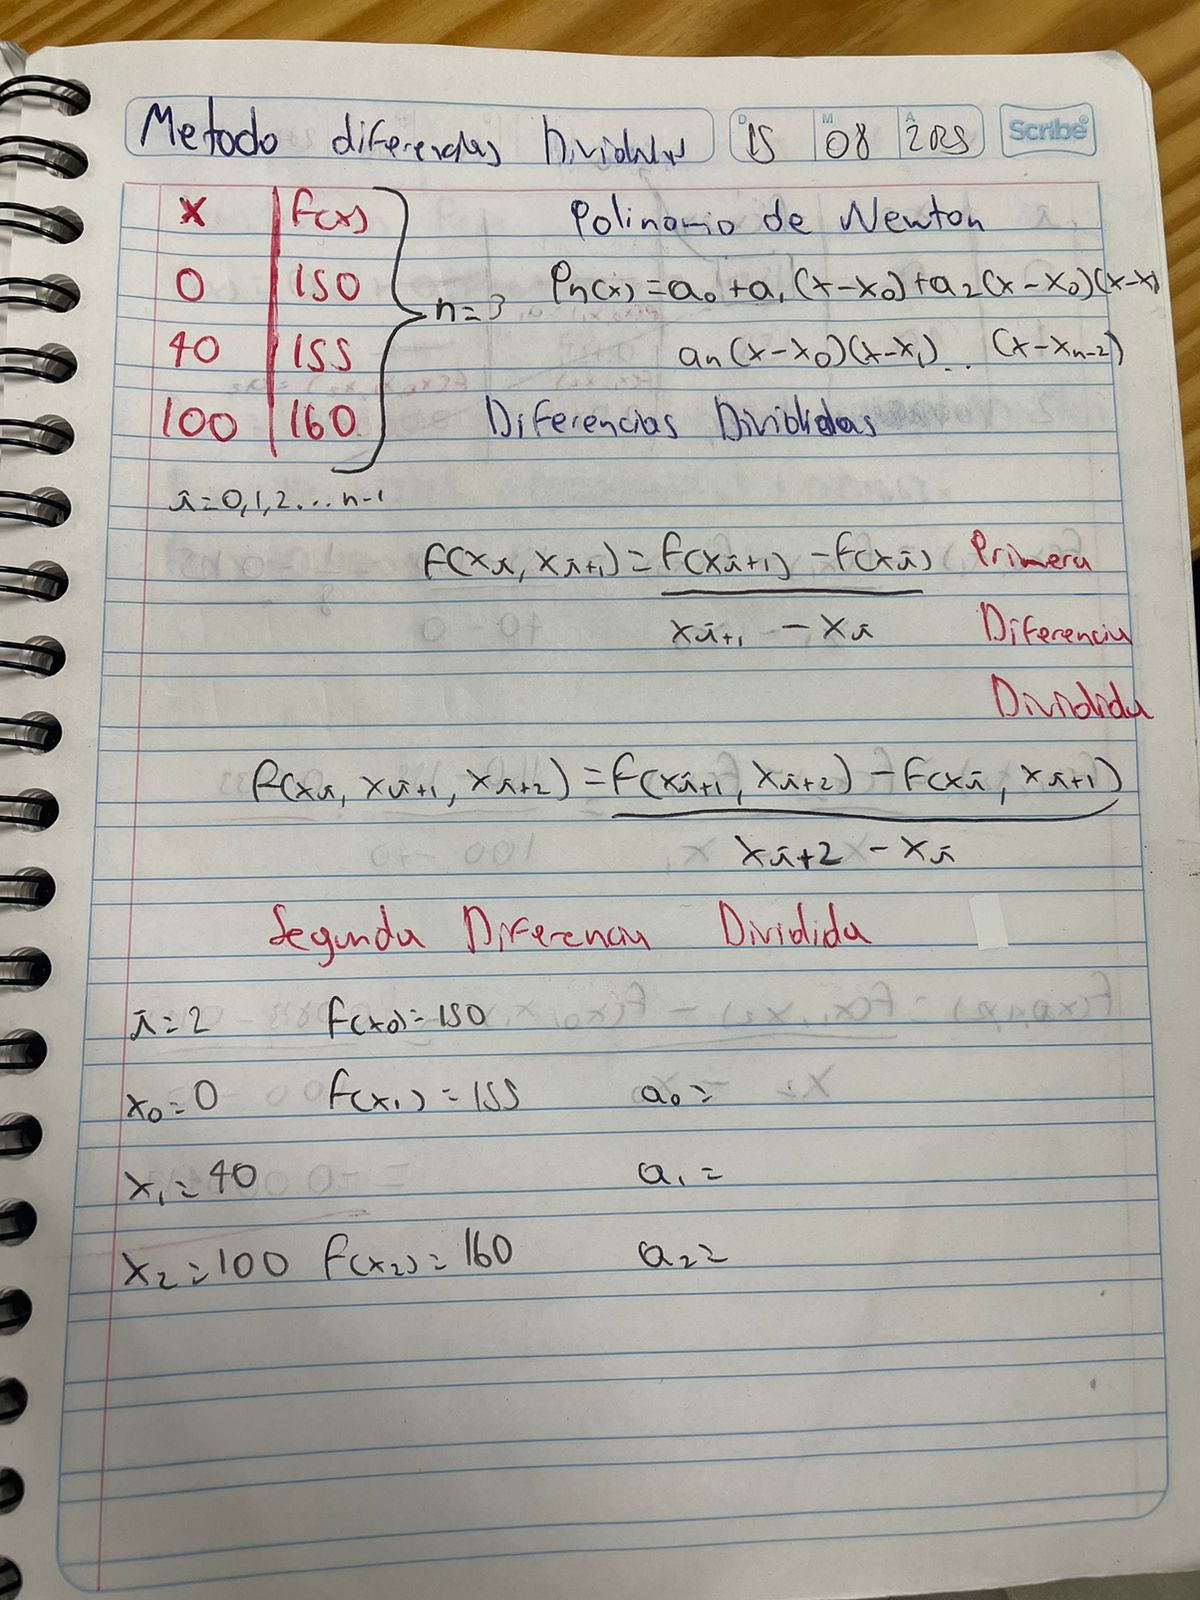 Metodo diferencias Divididas D 15 M 08 A 2025 Scribe
x f(x) Polinomio de Newton
0 150 n=3 Pn(x)=a0+a1(x-x0)+a2(x-x0)(x-x1
40 155 an(x-x0)(x-x1)... (x-xn-2)
100 160 Diferencias Divididas
i=0,1,2...n-1
f(xi, xi+1)=f(xi+1)-f(xi) Primera
xi+1 - xi Diferencia
Dividida
f(xi, xi+1, xi+2)=f(xi+1, xi+2)-f(xi, xi+1)
xi+2 - xi
Segunda Diferencia Dividida
i=2 f(x0)=150
x0=0 f(x1)=155 a0=
x1=40 a1=
x2=100 f(x2)=160 a2=